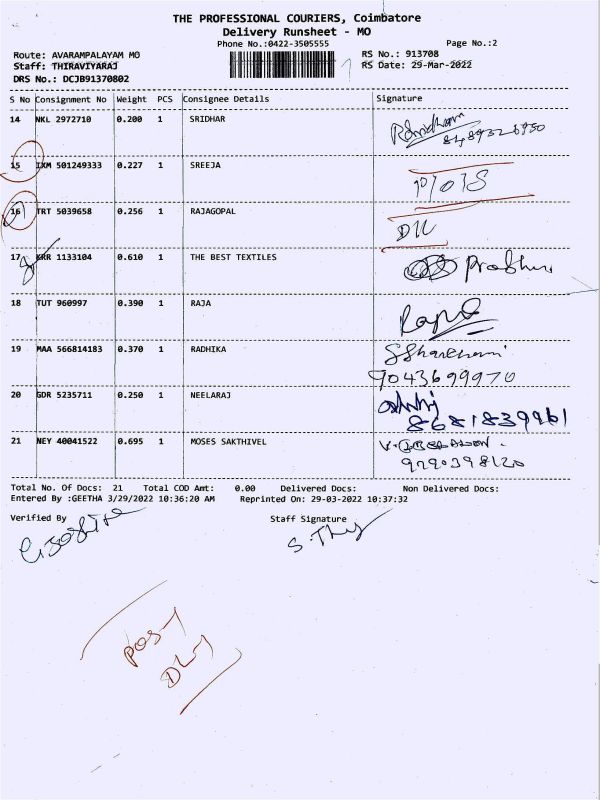 THE PROFESSIONAL COURIERS, Coimbatore
Delivery Runsheet - MO
Phone No.:0422-3505555
Page No.:2
Route: AVARAMPALAYAM MO
RS No.: 913708
Staff: THIRAVIYARAJ
RS Date: 29-Mar-2022
DRS No.: DCJB91370802
S No Consignment No Weight PCS Consignee Details Signature
14 NKL 2972710 0.200 1 SRIDHAR
15 IXM 501249333 0.227 1 SREEJA
16 TRT 5039658 0.256 1 RAJAGOPAL
17 KRR 1133104 0.610 1 THE BEST TEXTILES Prabhu
18 TUT 960997 0.390 1 RAJA
19 MAA 566814183 0.370 1 RADHIKA
9043699970
20 GDR 5235711 0.250 1 NEELARAJ
8681839961
21 NEY 40041522 0.695 1 MOSES SAKTHIVEL
Total No. Of Docs: 21 Total COD Amt: 0.00 Delivered Docs: Non Delivered Docs:
Entered By :GEETHA 3/29/2022 10:36:20 AM Reprinted On: 29-03-2022 10:37:32
Verified By Staff Signature